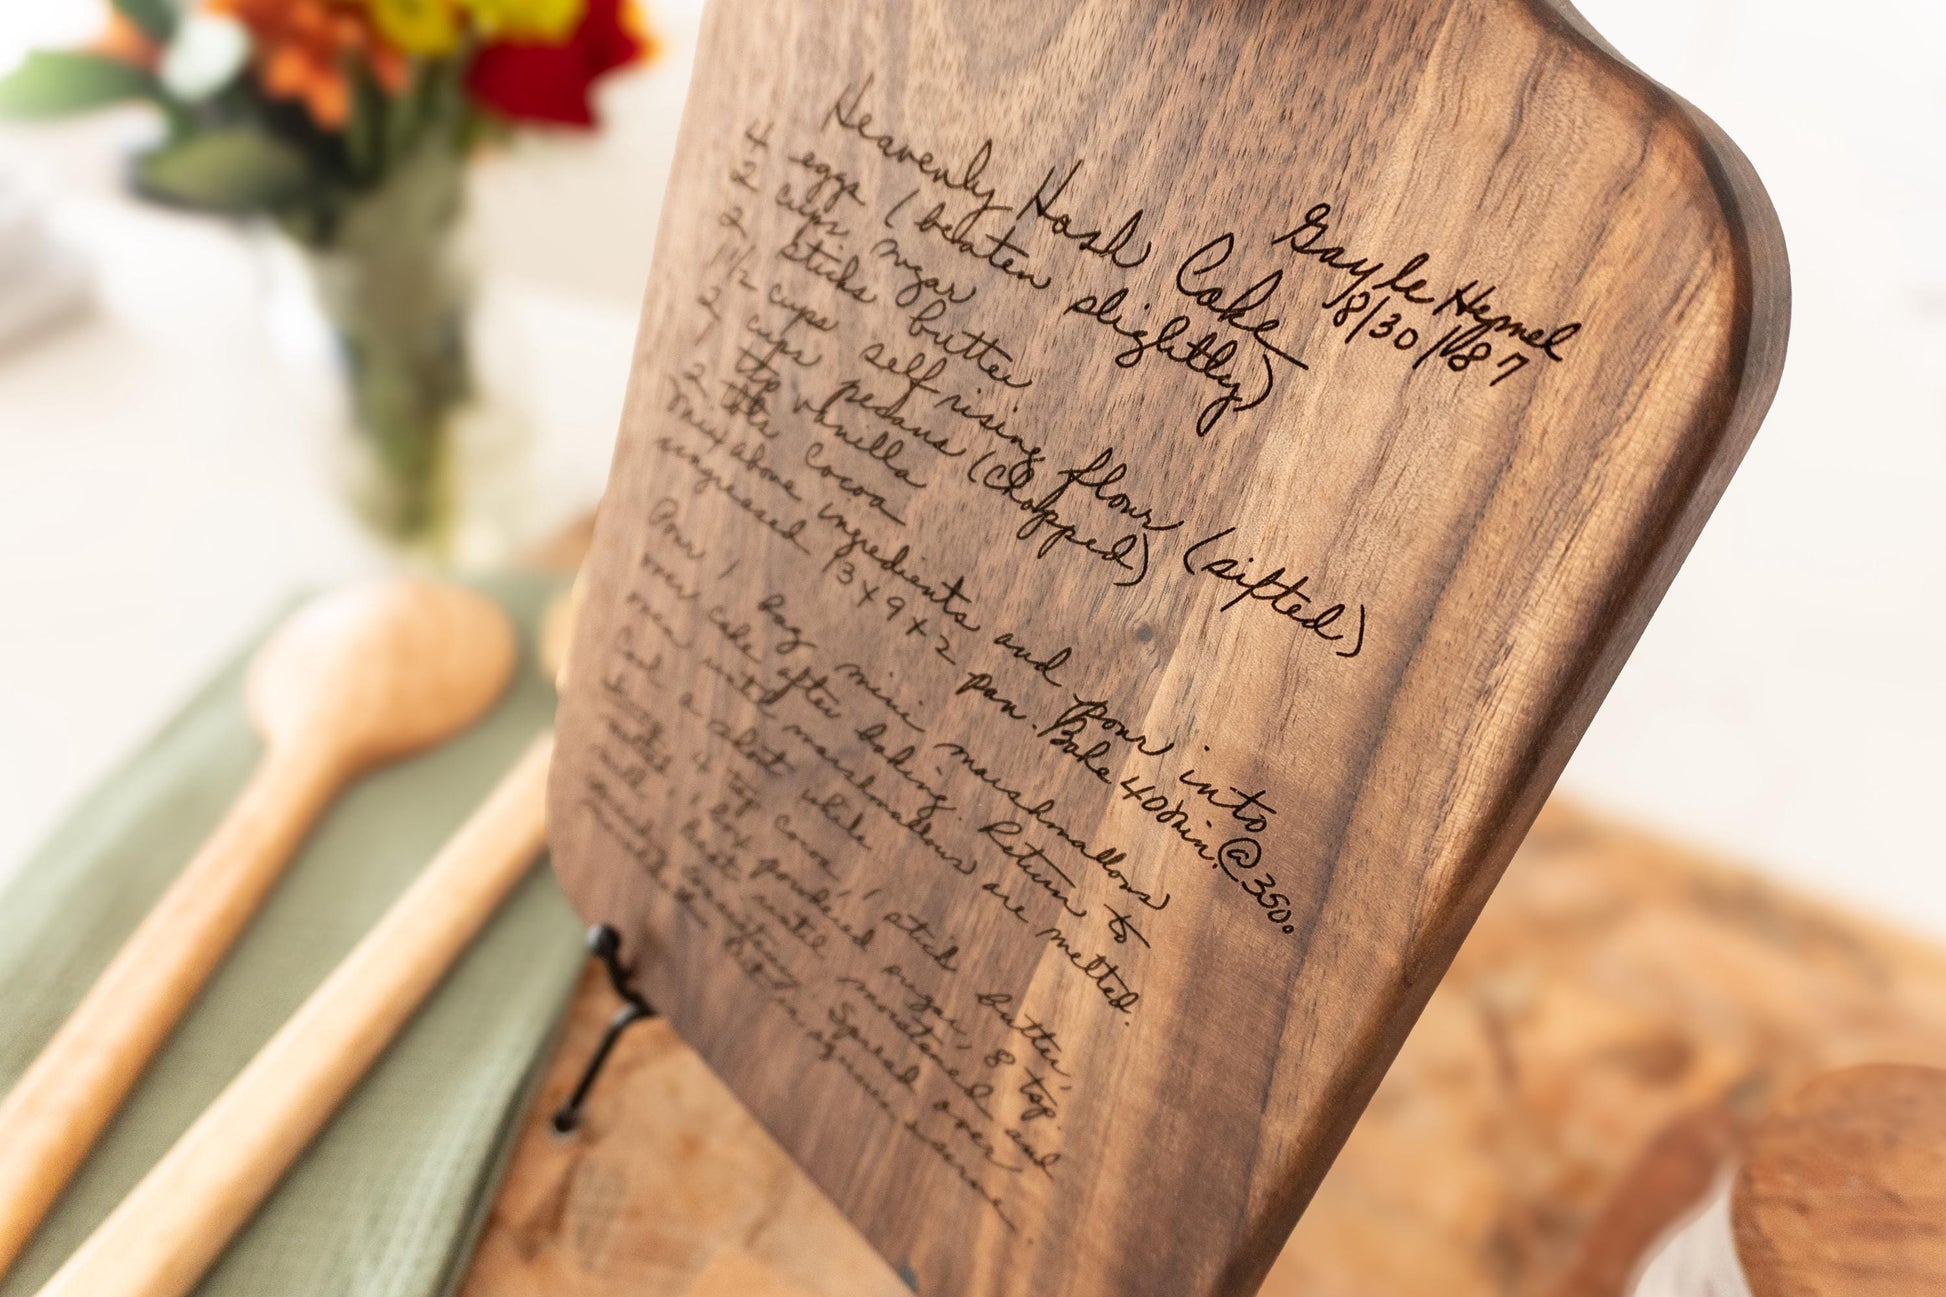 Heavenly Hash Cake
Gayle Hymel
8/30/87
4 eggs (beaten slightly)
2 cups sugar
2 sticks butter
1 1/2 cups self rising flour (sifted)
2 cups pecans (chopped)
1 tsp vanilla
2 tbls cocoa
Mix above ingredients and pour into
ungreased 13x9x2 pan. Bake 40 min. @ 350°.
Pour 1 bag mini marshmallows
over cake after baking. Return to
oven until marshmallows are melted.
Cool a short while.
4 tsp cocoa, 1 stick butter,
1 box powdered sugar, 8 tsp.
milk. Beat until moistened and
Spread over